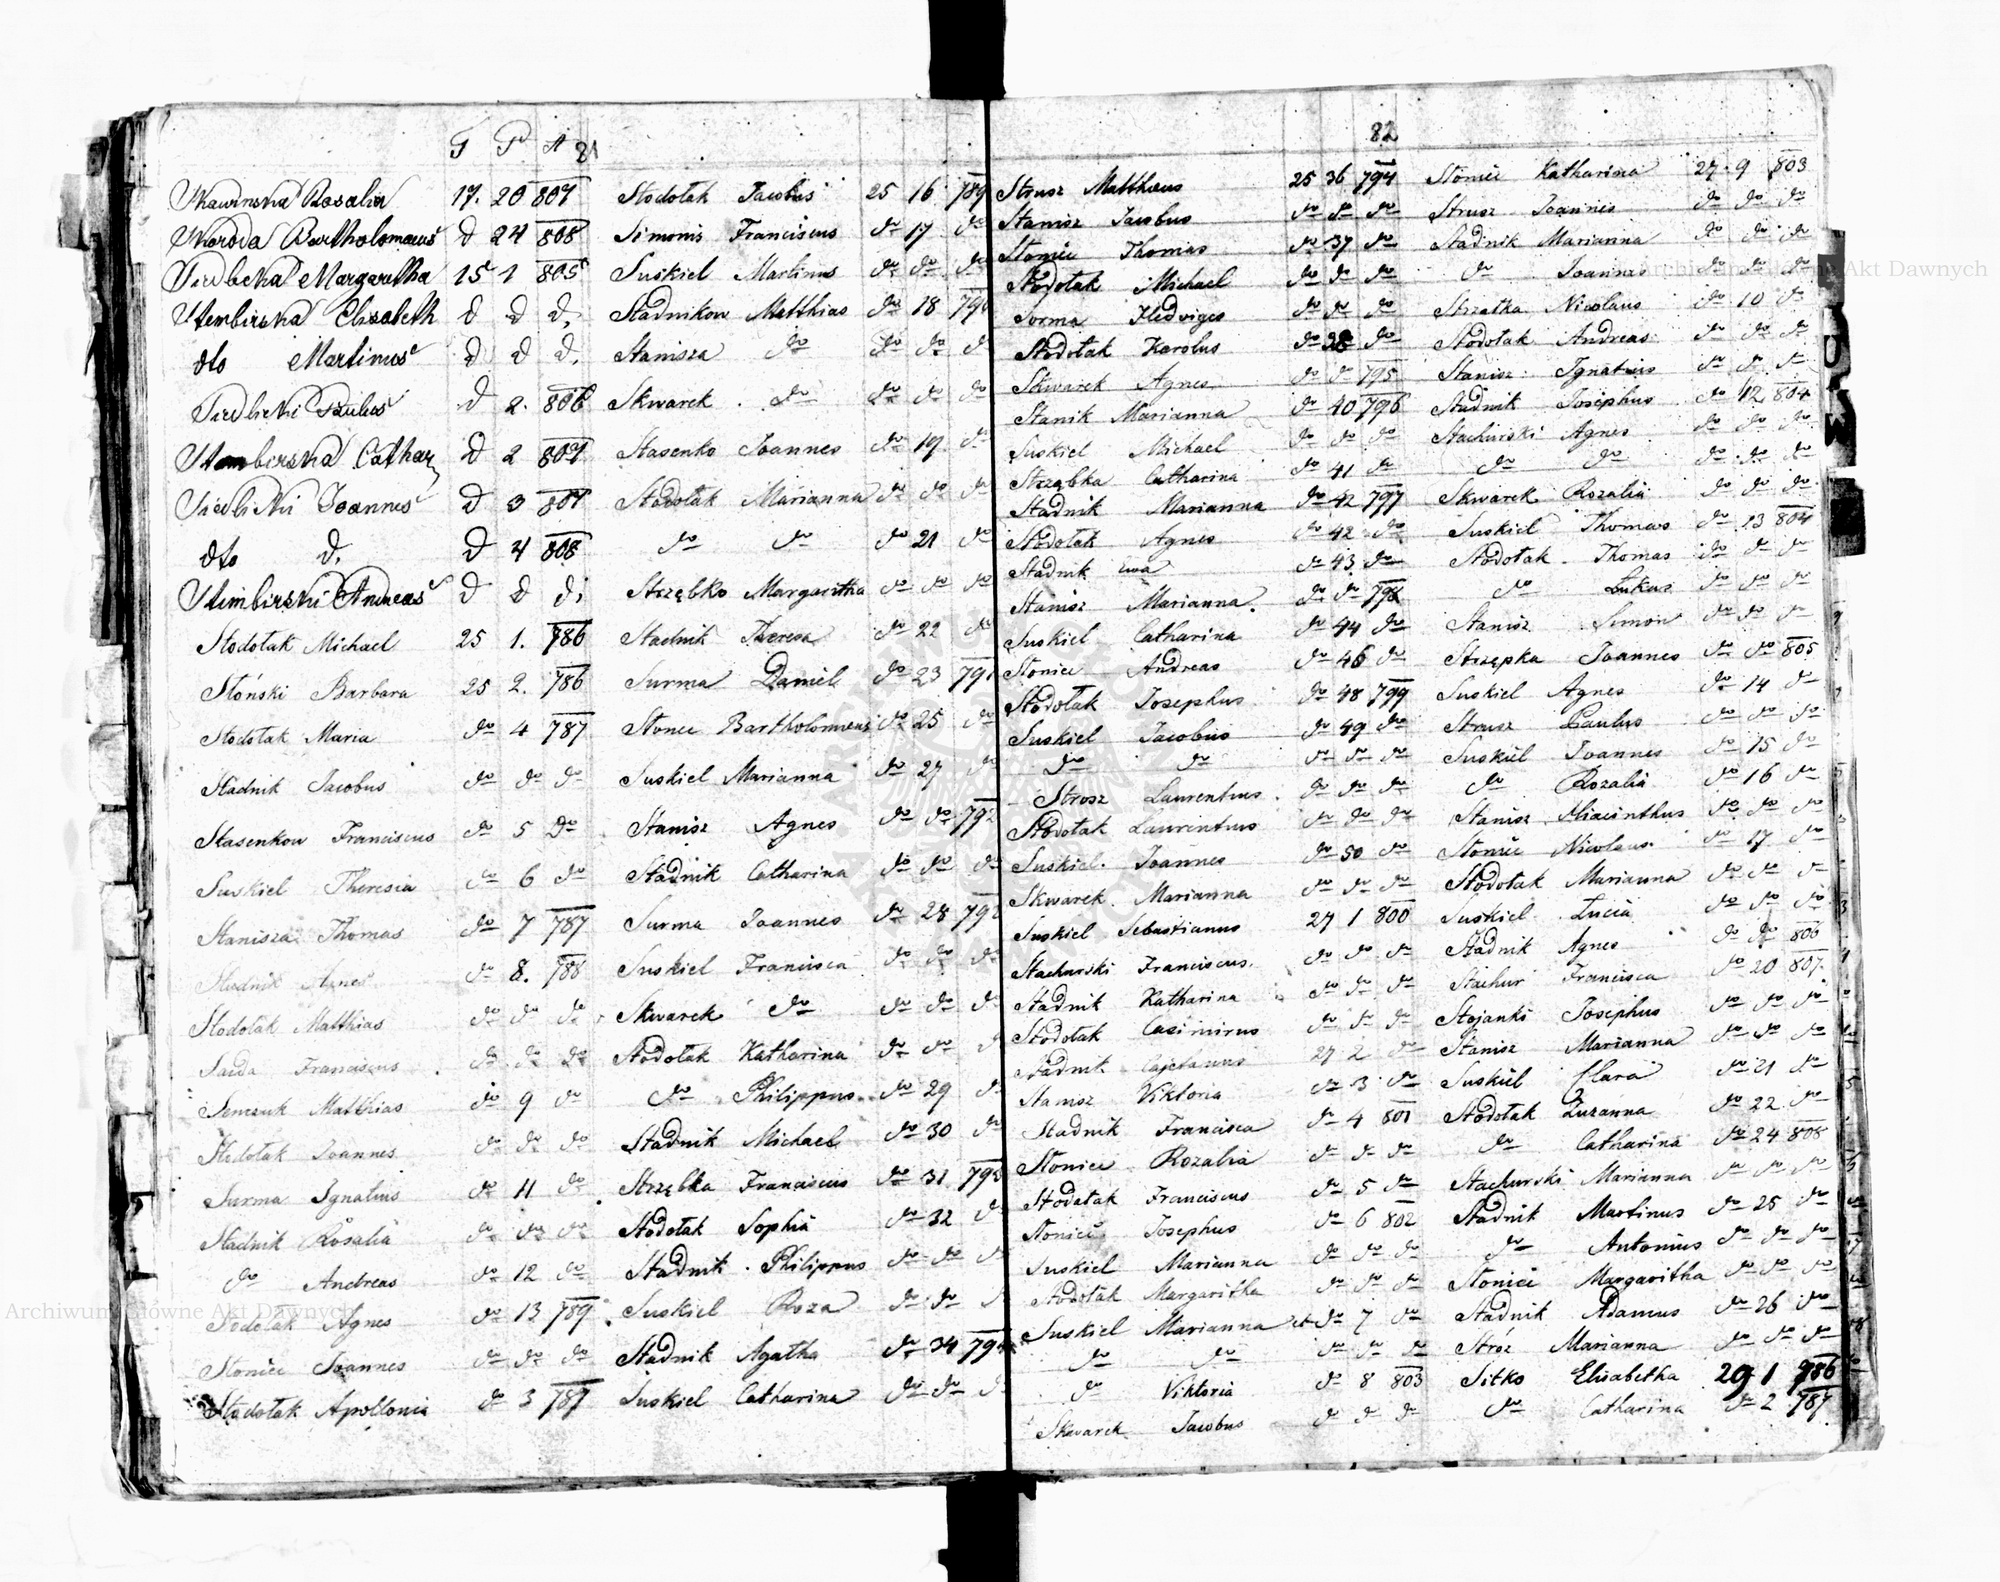 T P A 81
Skawinska Rosalia 17. 20 807
Skoroda Bartholomaeus d 24 808
Siedlecka Margaretha 15 1 805
Stembirska Elisabeth d d d.
dto Martinus d d d.
Siedlecki Paulus d 2. 806
Stembirska Cathar d 2 807
Siedlecki Joannes d 3 807
dto d. d 4 808
Stembirski Andreas d d d.
Stodołak Michael 25 1. 786
Słoński Barbara 25 2. 786
Stodołak Maria do 4 787
Stadnik Jacobus do do do
Stasenkow Franciscus do 5 Do
Suskiel Theresia do 6 do
Stanisza Thomas do 7 787
Stadnik Agnes do 8. 788
Stodołak Matthias do do do
Saida Franciscus do do do
Semczuk Matthias do 9 do
Stodołak Joannes do do do
Surma Ignatius do 11 do
Stadnik Rosalia do do do
do Andreas do 12 do
Stodołak Agnes do 13 789
Słoniec Joannes do do do
Stodołak Apollonia do 3 787
Stodołak Jacobus 25 16 789
Simonis Franciscus do 17 do
Suskiel Martinus do do do
Stadnikow Matthias do 18 790
Stanisza do do do d
Skwarek do do do do
Stasenko Joannes do 19. do
Stodołak Marianna do do do
do do do 21 do
Strzębko Margaritha do do do
Stadnik Theresa do 22 do
Surma Daniel do 23 791
Słoniec Bartholomeus do 25 do
Suskiel Marianna do 27 d
Stanisz Agnes do do 792
Stadnik Catharina do do do
Surma Joannes do 28 792
Suskiel Francisca do do do
Skwarek do do do d
Stodołak Katharina do do d
do Philippus do 29 d
Stadnik Michael do 30 do
Strzębka Franciscus do 31 793
Stodołak Sophia do 32 d
Stadnik Philippus do do d
Suskiel Roza do do d
Stadnik Agatha do 34 794
Suskiel Catharina do do d
82
Strusz Mattheus 25 36 794
Stanisz Jacobus do do do
Słoniec Thomas do 37 do
Stodołak Michael do do do
Sorma Hedviges do do do
Stodołak Karolus do 38 do
Skwarek Agnes do do 795
Stanik Marianna do 40 796
Suskiel Michael do do do
Strząbka Catharina do 41 do
Stadnik Marianna do 42 797
Stodołak Agnes do 42 do
Stadnik Ewa do 43 do
Stanisz Marianna. do do 798
Suskiel Catharina do 44 do
Słoniec Andreas do 46 do
Stodołak Josephus do 48 799
Suskiel Jacobus do 49 do
do do do do do
Strosz Laurentius do do do
Stodołak Laurentius do do do
Suskiel Joannes do 50 do
Skwarek Marianna do do do
Suskiel Sebastianus 27 1 800
Stachurski Franciscus. do do do
Stadnik Katharina do do do
Stodołak Casimirus do do do
Stadnik Cajetanus 27 2 do
Stanisz Viktoria do 3 do
Stadnik Francisca do 4 801
Słoniec Rozalia do do do
Stodołak Franciscus do 5 do
Słoniec Josephus do 6 802
Suskiel Marianna do do do
Stodołak Margaritha do do do
Suskiel Marianna et do 7 do
do do do do do
do Viktoria do 8 803
Skwarek Jacobus do do do
Słoniec Katharina 27 9 803
Strusz Joannes do do do
Stadnik Marianna do do do
do Joannes do do do
Strzałka Nicolaus do 10 do
Stodołak Andreas do do do
Stanisz Ignatius do do do
Stadnik Josephus do 12 804
Stachurski Agnes do do do
do do do do do
Skwarek Rozalia do do do
Suskiel Thomas do 13 804
Stodołak Thomas do do do
do Lukas do do do
Stanisz Simon do do do
Strzępka Joannes do do 805
Suskiel Agnes do 14 do
Strusz Paulus do do do
Suskiel Joannes do 15 do
do Rozalia do 16 do
Stanisz Hiacinthus do do do
Słoniec Nicolaus do 17 do
Stodołak Marianna do do do
Suskiel Lucia do do do
Stadnik Agnes do do 806
Stachur Francisca do 20 807
Stojanki Josephus do do do
Stanisz Marianna do do do
Suskiel Clara do 21 do
Stodołak Zuzanna do 22 do
do Catharina do 24 808
Stachurski Marianna do do do
Stadnik Martinus do 25 do
do Antonius do do do
Słoniec Margaritha do do do
Stadnik Adamus do 26 do
Stróz Marianna do do do
Sitko Elisabetha 29 1 786
do Catharina do 2 787
Archiwum Główne Akt Dawnych
Archiwum Główne Akt Dawnych